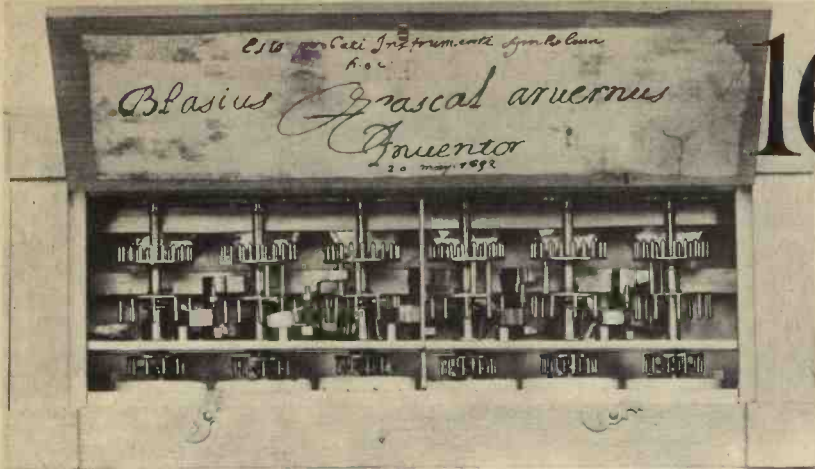 Esto probati Instrumenti symbolum
hoc
Blasius Pascal aruernus
Inuentor
20 may 1652
16